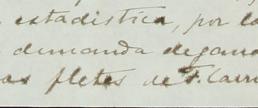 estadística, por la
demanda de gana
as fletes de F. Carri